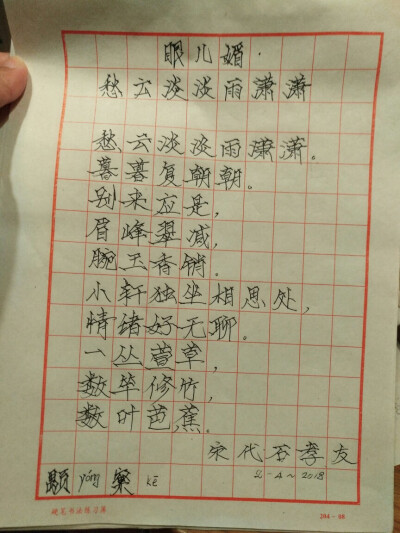 眼儿媚·
愁云淡淡雨潇潇
愁云淡淡雨潇潇。
暮暮复朝朝。
别来应是,
眉峰翠减,
腕玉香销。
小轩独坐相思处,
情绪好无聊。
一丛萱草,
数竿修竹,
数叶芭蕉。
宋代石孝友
2-4~2018
yóng kē